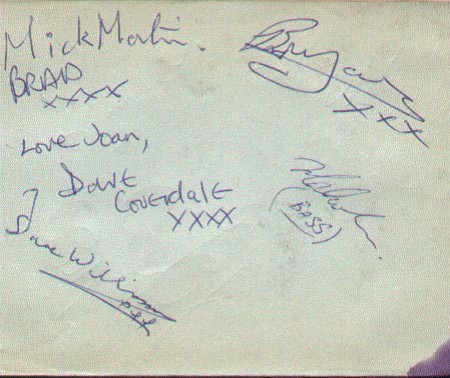 Mick Martin.
BRAD
xxxx
Bryan
xxx
Love Joan,
Dave
Coverdale
xxxx
(BASS)
Dave Williams
xxx